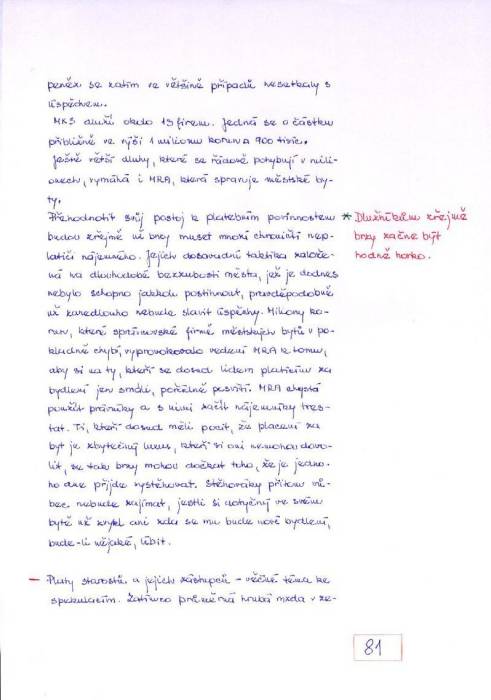 peněz se zatím ve většině případů nesetkaly s
úspěchem.
MKS dluží okolo 15 firem. Jedná se o částku
přibližně ve výši 1 milionu korun a 900 tisíc.
Ještě větší dluhy, které se řádově pohybují v mili-
onech, vymáhá i MRA, která spravuje městské by-
ty.
Přehodnotit svůj postoj k platebním povinnostem
budou zřejmě už brzy muset mnozí chroničtí nep-
latiči nájemného. Jejich dosavadní taktika založe-
ná na dlouhodobé bezzubosti města, jež je dodnes
nebylo schopno jakkoli postihnout, pravděpodobně
už zanedlouho nebude slavit úspěchy. Miliony ko-
run, které správcovské firmě městských bytů v po-
kladně chybí, vyprovokovalo vedení MRA k tomu,
aby si na ty, kteří se dosud lidem platícím za
bydlení jen smáli, pořádně posvítí. MRA chystá
použít právníky a s nimi začít nájemníky tres-
tat. Ti, kteří dosud měli pocit, že placení za
byt je zbytečný luxus, kteří si oni nemohou dovo-
lit, se tak brzy mohou dočkat toho, že je jedno-
ho dne přijde vystěhovat. Stěhováky přitom vů-
bec nebude zajímat, jestli si dotyčný ve svém
bytě už zvykl ani zda se mu bude nové bydlení,
bude-li nějaké, líbit.
* Dlužníkům zřejmě
brzy začne být
hodně horko.
– Platy starostů a jejich zástupců – věčné téma ke
spekulacím. Zatímco průměrná hrubá mzda v ze-
81